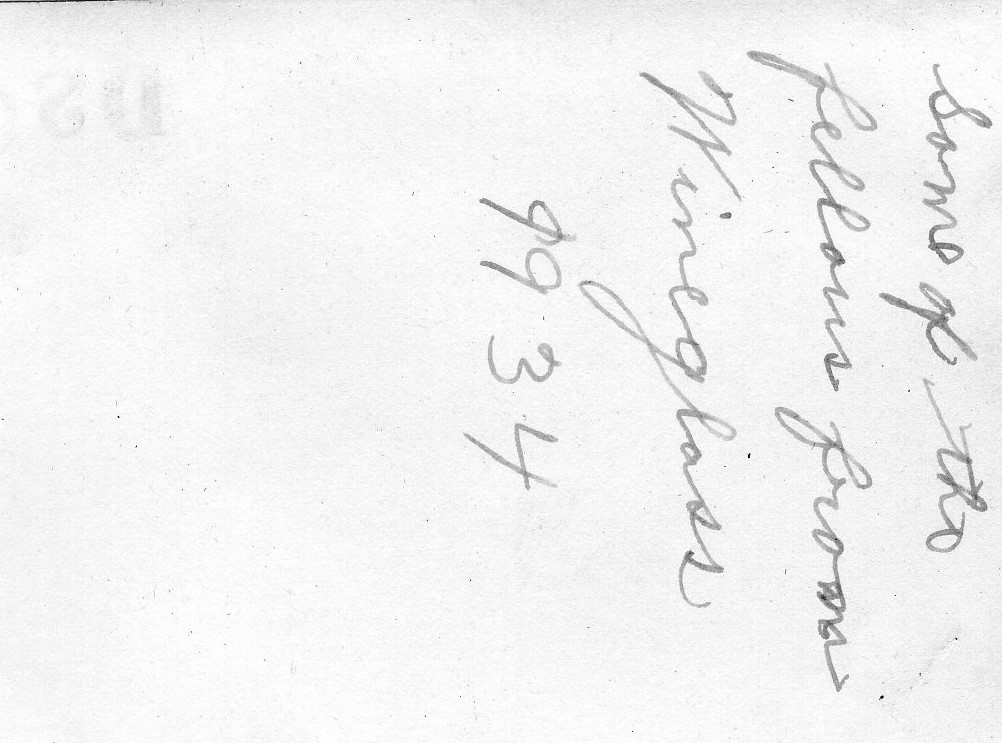 Some of the
fellows from
Wineglass
1934